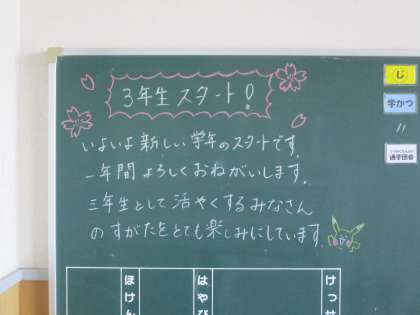 3年生スタート!
いよいよ新しい学年のスタートです。
一年間よろしくおねがいします。
三年生として活やくするみなさん
のすがたをとても楽しみにしています。
じ
学かつ
〃
通学団会
ほけん
はやび
けっせ